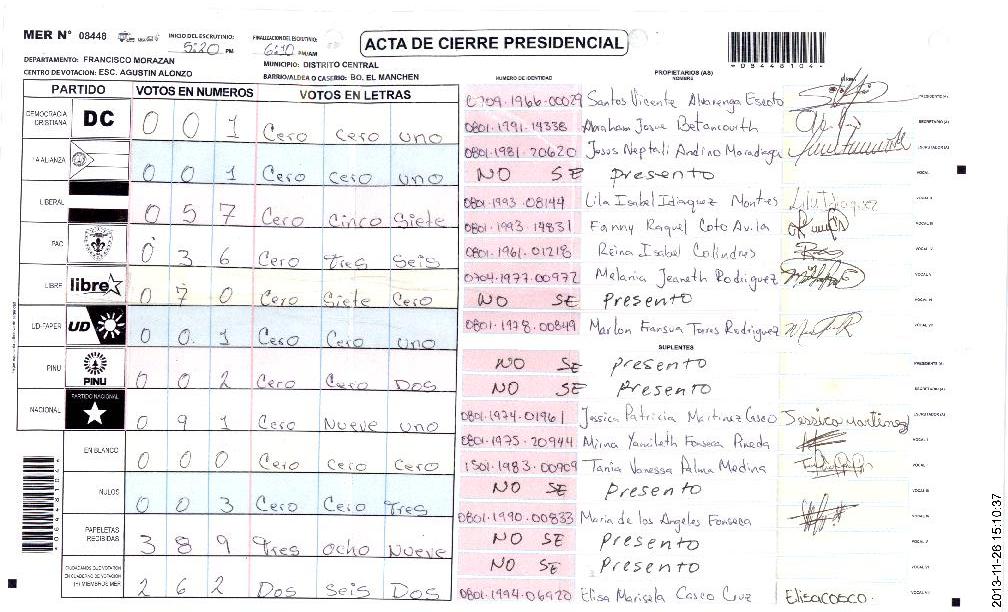 MER N° 08448
INICIO DEL ESCRUTINIO: 5:20 PM
FINALIZACION DEL ESCRUTINIO: 6:10 PM/AM
ACTA DE CIERRE PRESIDENCIAL
DEPARTAMENTO: FRANCISCO MORAZAN
MUNICIPIO: DISTRITO CENTRAL
CENTRO DE VOTACION: ESC. AGUSTIN ALONZO
BARRIO/ALDEA O CASERIO: BO. EL MANCHEN
PARTIDO VOTOS EN NUMEROS VOTOS EN LETRAS
DEMOCRACIA CRISTIANA DC 0 0 1 Cero cero uno
LA ALIANZA 0 0 1 Cero cero uno
LIBERAL 0 5 7 Cero Cinco Siete
PAC 0 3 6 Cero tres seis
LIBRE libre 0 7 0 Cero Siete Cero
UD-FAPER UD 0 0 1 Cero Cero uno
PINU PINU 0 0 2 Cero Cero Dos
NACIONAL PARTIDO NACIONAL 0 9 1 Cero Nueve uno
EN BLANCO 0 0 0 Cero Cero Cero
NULOS 0 0 3 Cero Cero Tres
PAPELETAS RECIBIDAS 3 8 9 Tres ocho Nueve
CIUDADANOS QUE VOTARON EN CUADERNO DE VOTACION (+) MIEMBROS MER 2 6 2 Dos Seis Dos
NUMERO DE IDENTIDAD PROPIETARIOS (AS) NOMBRE FIRMA
0709-1966-00029 Santos Vicente Alvarenga Escoto PRESIDENTE (A)
0801-1991-14338 Abraham Josue Betancourth SECRETARIO (A)
0801-1981-20620 Jesus Neptali Andino Moradiaga ESCRUTADOR (A)
NO SE presento VOCAL I
0801-1993-08144 Lila Isabel Idiaquez Montes VOCAL II
0801-1993-14831 Fanny Raquel Coto Avila VOCAL III
0801-1961-01218 Reina Isabel Calindres
0704-1977-00972 Melania Jeaneth Rodriguez VOCAL V
NO SE Presento VOCAL VI
0801-1978-00849 Marlon Fransua Torres Rodriguez VOCAL VII
SUPLENTES
NO SE presento PRESIDENTE (A)
NO SE presento SECRETARIO (A)
0801-1974-01961 Jessica Patricia Martinez Casco Jessica martinez ESCRUTADOR (A)
0801-1975-20944 Mirna Yamileth Fonseca Pineda VOCAL I
1501-1983-00909 Tania Vanessa Palma Medina
NO SE presento VOCAL III
0801-1990-00833 Maria de los Angeles Fonseca VOCAL IV
NO SE presento VOCAL V
NO SE Presento VOCAL VI
0801-1994-06920 Elisa Marisela Casco Cruz Elisa COSCO. VOCAL VII
2013-11-26 15:10:37